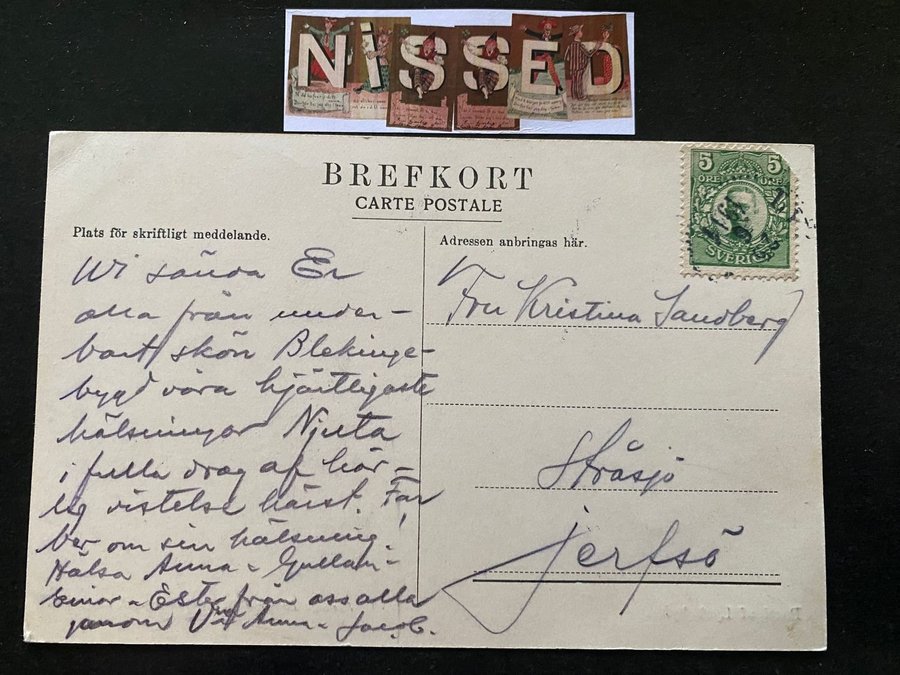 NISSED
BREFKORT
CARTE POSTALE
5 5
ÖRE ÖRE
SVERIGE
Plats för skriftligt meddelande.
Wi sända Er
alla från under-
bart skön Blekinge-
bygd våra hjärtligaste
hälsningar Njuta
i fulla drag af här-
lig vistelse härst. Far
ber om sin hälsning.
Hälsa Anna - Gullan -
Einar - Ester från oss alla
genom Anna - Jacob.
Adressen anbringas här.
Fru Kristina Sandberg
Stråsjö
Jerfsö